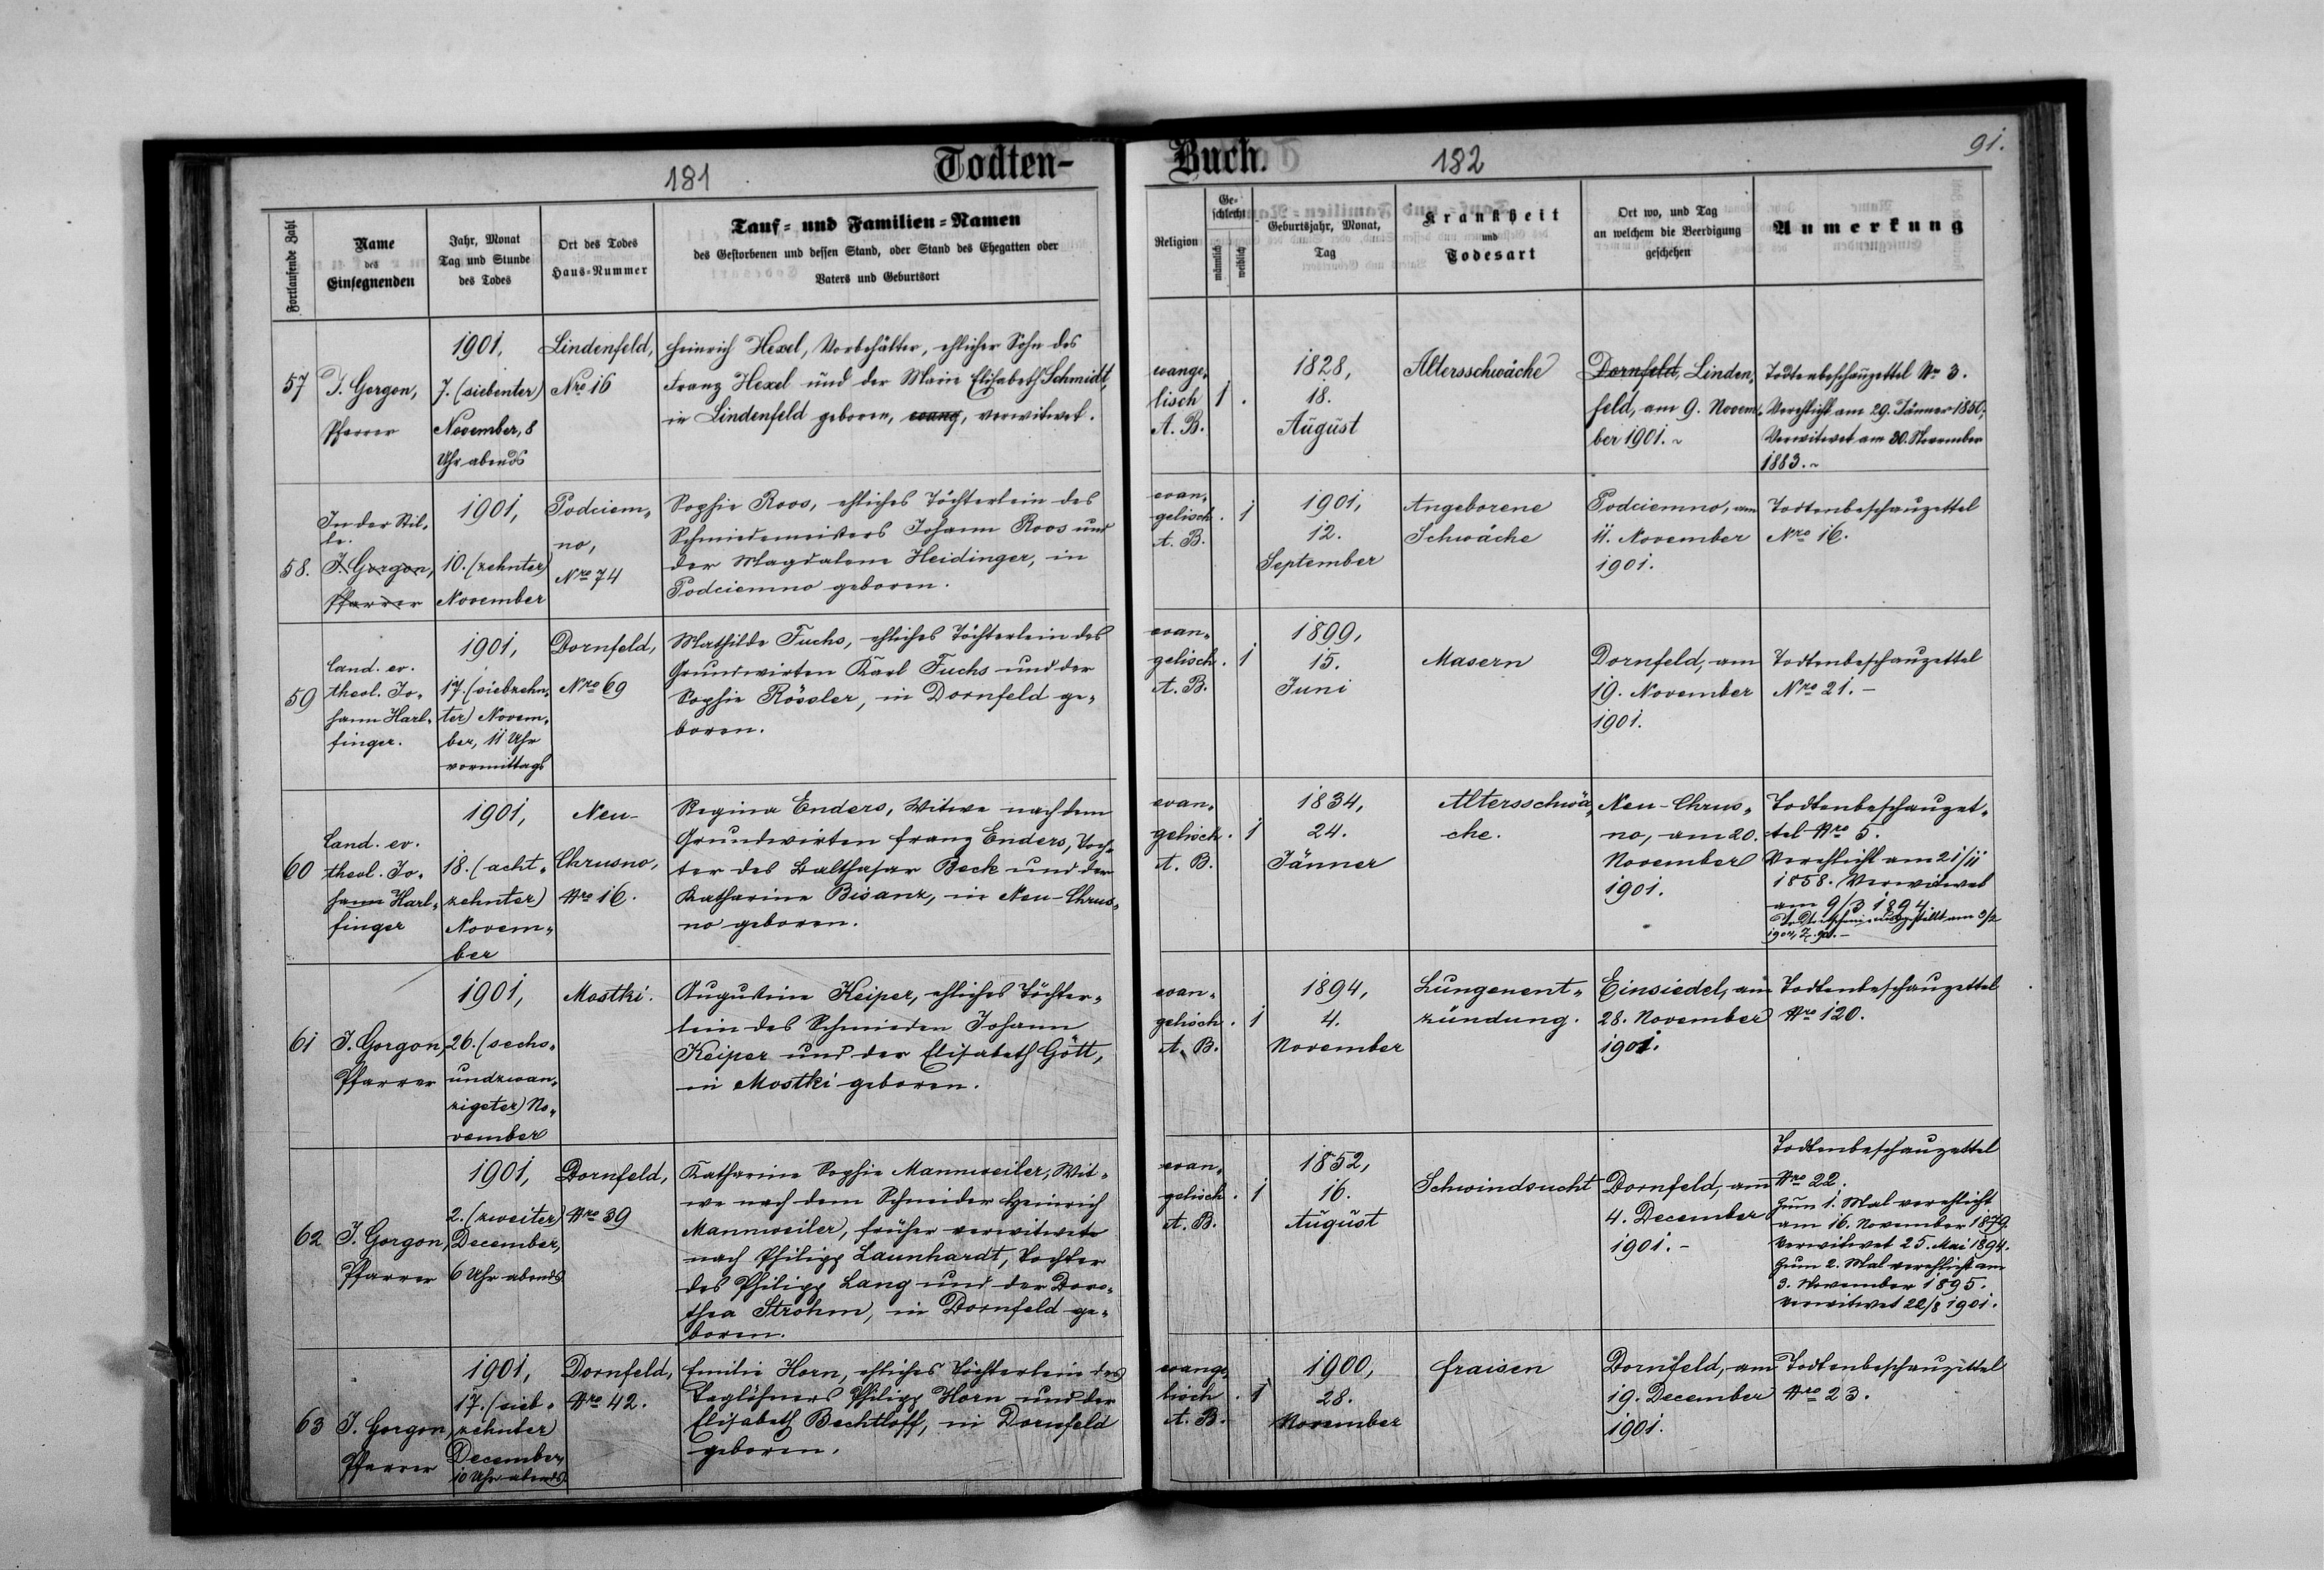 181
Todten-
Buch.
182
91.
Fortlaufende Zahl
Name
des
Einsegnenden
Jahr, Monat
Tag und Stunde
des Todes
Ort des Todes
Haus-Nummer
Tauf- und Familien-Namen
des Gestorbenen und dessen Stand, oder Stand des Ehegatten oder
Vaters und Geburtsort
Religion
Ge-
schlecht
männlich
weiblich
Geburtsjahr, Monat,
Tag
Krankheit
und
Todesart
Ort wo, und Tag
an welchem die Beerdigung
geschehen
Anmerkung
57
J. Gorgon,
Pfarrer
1901,
7. (siebenter)
November, 8
Uhr abends
Lindenfeld,
Nro 16
Heinrich Hexel, Vorbehälter, ehlicher Sohn des
Franz Hexel und der Marie Elisabeth Schmidt,
in Lindenfeld geboren, evang, verwitwet.
evange„
lisch
A. B.
1 .
1828,
18.
August
Altersschwäche
Dornfeld, Linden„
feld, am 9. Novem„
ber 1901.
Todtenbeschauzettel Nr 3.
Verehlicht am 29. Jänner 1850.
Verwitwet am 30. November
1883.
58.
In der Stil„
le.
J. Gorgon,
Pfarrer
1901,
10. (zehnter)
November
Podciem„
no,
Nro 74
Sophie Roos, ehliches Töchterlein des
Schmiedemeisters Johann Roos und
der Magdalene Heidinger, in
Podciemno geboren.
evan„
gelisch
A. B.
. 1
1901,
12.
September
Angeborene
Schwäche
Podciemno, am
11. November
1901.
Todtenbeschauzettel
Nro 16.
59
Cand. ev.
theol. Jo„
hann Harl„
finger.
1901,
17. (siebzehn„
ter) Novem„
ber, 11 Uhr
vormittags
Dornfeld,
Nro 69
Mathilde Fuchs, ehliches Töchterlein des
Grundwirten Karl Fuchs und der
Sophie Rössler, in Dornfeld ge„
boren.
evan„
gelisch
A. B.
. 1
1899,
15.
Juni
Masern
Dornfeld, am
19. November
1901.
Todtenbeschauzettel
Nro 21. –
60
Cand. ev.
theol. Jo„
hann Harl„
finger
1901,
18. (acht„
zehnter)
Novem„
ber
Neu-
Chrusno,
Nro 16.
Regina Enders, Witwe nach dem
Grundwirten Franz Enders, Toch„
ter des Balthasar Beck und der
Katharine Bisanz, in Neu-Chrus„
no geboren.
evan„
gelisch
A. B.
. 1
1834,
24.
Jänner
Altersschwä„
che.
Neu-Chrus„
no, am 20.
November
1901.
Todtenbeschauzet„
tel Nro 5.
Verehlicht am 21/11
1858. Verwitwet
am 9/3 1894.
Todtenschein ausgestellt am 3/2
61
J. Gorgon,
Pfarrer
1901,
26. (sechs„
undzwan„
zigster) No„
vember
Mostki.
Augustine Keiper, ehliches Töchter„
lein des Schmieden Johann
Keiper und der Elisabeth Gött,
in Mostki geboren.
evan„
gelisch
A. B.
. 1
1894,
4.
November
Lungenent„
zündung.
Einsiedel, am
28. November
1901.
Todtenbeschauzettel
Nro 120.
62
J. Gorgon,
Pfarrer
1901,
2. (zweiter)
December,
6 Uhr abends
Dornfeld,
Nro 39
Katharine Sophie Mannweiler, Wit„
we nach dem Schneider Heinrich
Mannweiler, früher verwitwete
nach Philipp Launhardt, Tochter
des Philipp Lang und der Doro„
thea Strohm, in Dornfeld ge„
boren.
evan„
gelisch
A. B.
. 1
1852,
16.
August
Schwindsucht
Dornfeld, am
4. December
1901. –
Todtenbeschauzettel
Nro 22.
Zum 1. Mal verehlicht
am 16. November 1879.
Verwitwet 25. Mai 1894.
Zum 2. Mal verehlicht am
3. November 1895.
Verwitwet 22/8 1901.
63
J. Gorgon,
Pfarrer
1901,
17. (sieb„
zehnter
December,
10 Uhr abends
Dornfeld,
Nro 42.
Emilie Horn, ehliches Töchterlein des
Taglöhners Philipp Horn und der
Elisabeth Bechtloff, in Dornfeld
geboren.
evange„
lisch
A. B.
. 1
1900,
28.
November
Fraisen
Dornfeld, am
19. December
1901.
Todtenbeschauzettel
Nro 23.